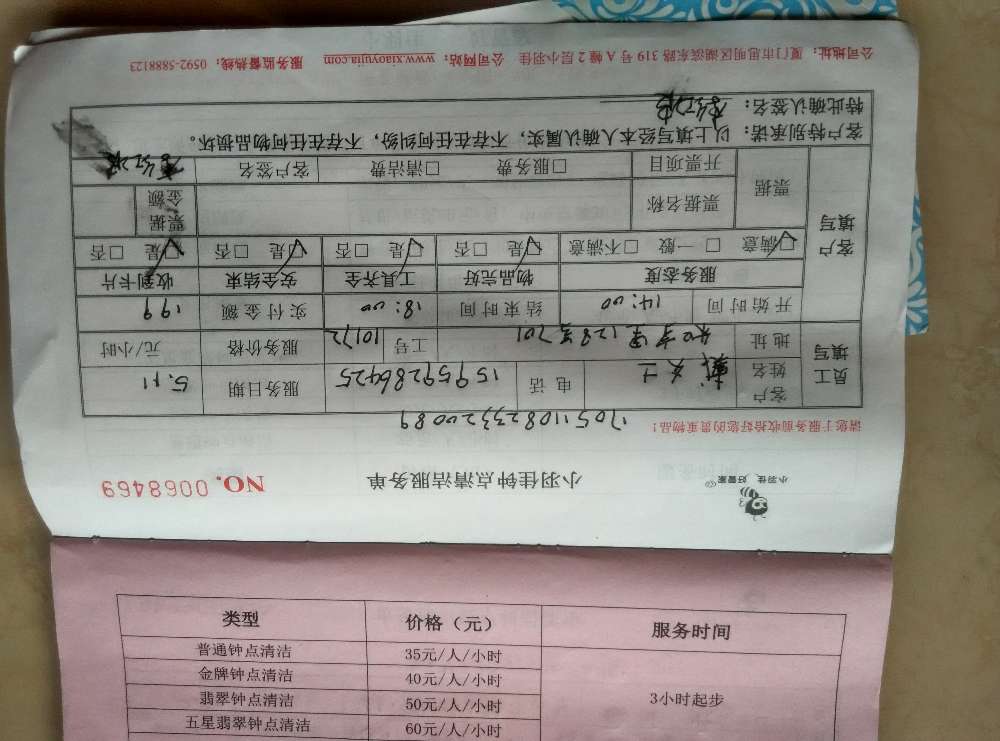 小羽佳,好管家
小羽佳钟点清洁服务单
NO. 0068469
请您于服务前收拾好您的贵重物品!
170511082333220089
员工填写
客户姓名 女士 电话 15959286425 服务日期 5.11
地址 128号701 工号 10172 服务价格 元/小时
客户填写
开始时间 14:00 结束时间 18:00 实付金额 199
服务态度 物品完好 工具齐全 安全结束 收到卡片
☑满意 □一般 □不满意 ☑是 □否 ☑是 □否 ☑是 □否 ☑是 □否
票据 票据名称 票据金额
开票项目 □服务费 □清洁费 客户签名
客户特别承诺:以上填写经本人确认属实,不存在任何纠纷,不存在任何物品损坏。
特此确认签名:
公司地址:厦门市思明区湖滨东路 319 号 A 幢 2 层小羽佳 公司网站:www.xiaoyujia.com 服务监督热线:0592-5888123
类型 价格(元) 服务时间
普通钟点清洁 35元/人/小时 3小时起步
金牌钟点清洁 40元/人/小时
翡翠钟点清洁 50元/人/小时
五星翡翠钟点清洁 60元/人/小时